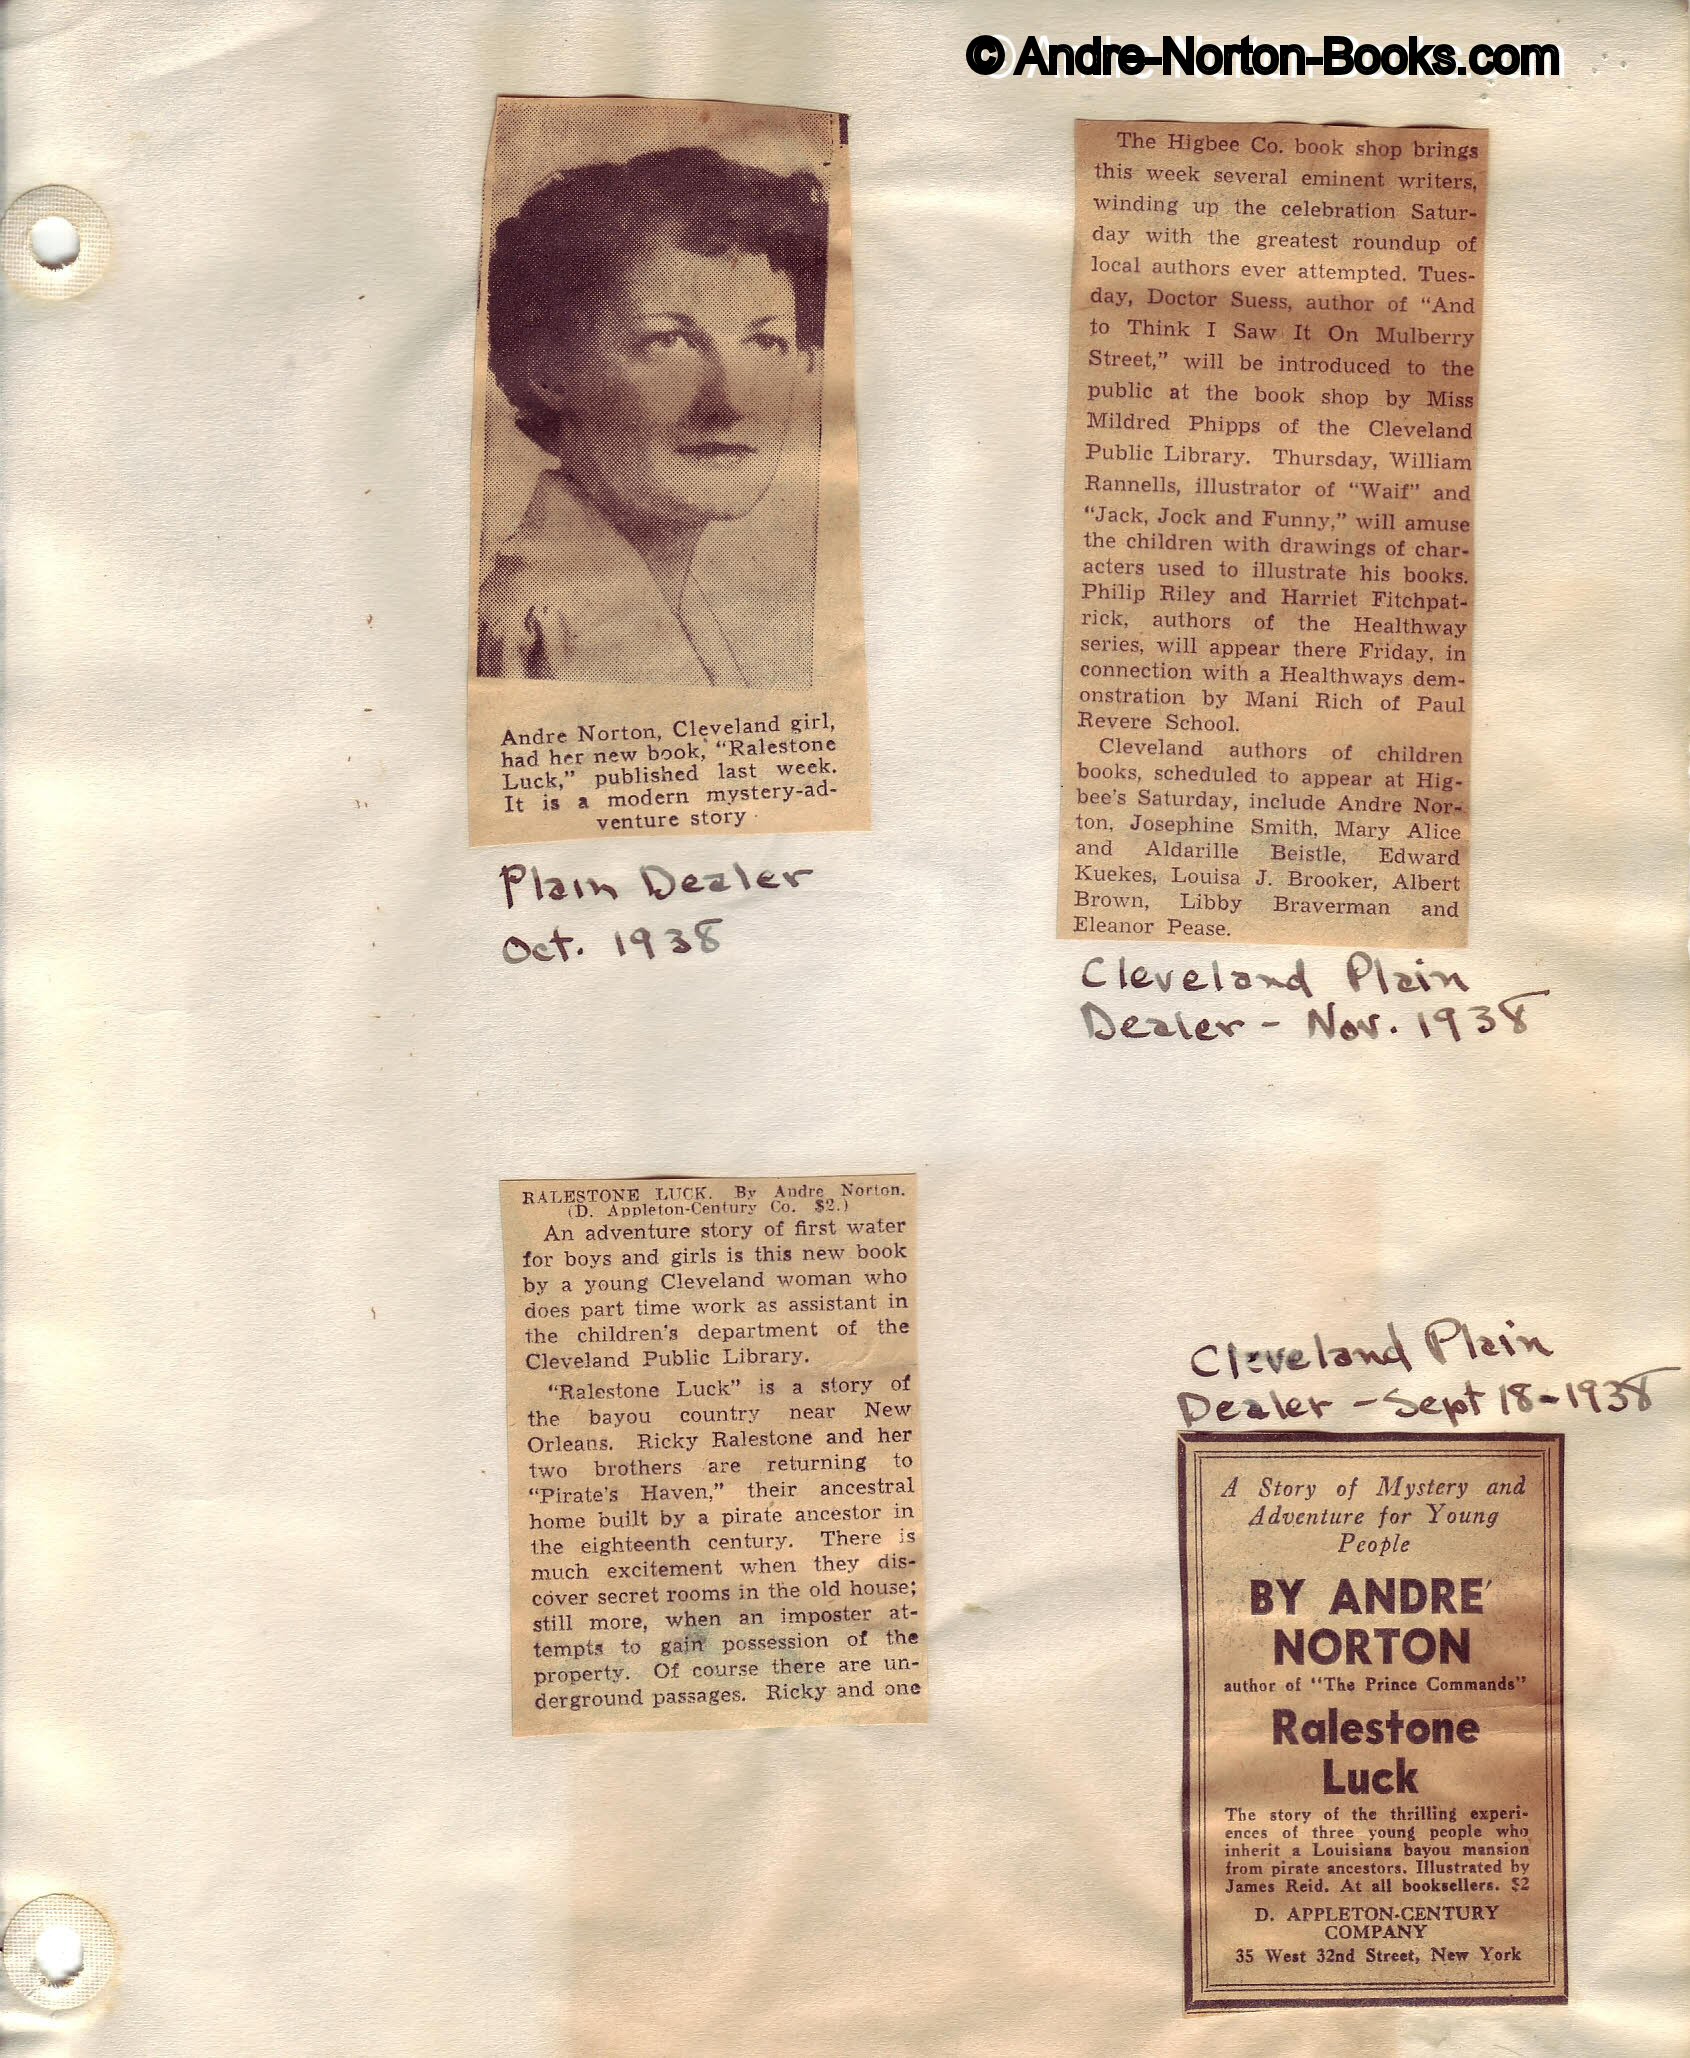 © Andre-Norton-Books.com
Andre Norton, Cleveland girl,
had her new book, “Ralestone
Luck,” published last week.
It is a modern mystery-ad-
venture story
Plain Dealer
Oct. 1938
The Higbee Co. book shop brings
this week several eminent writers,
winding up the celebration Satur-
day with the greatest roundup of
local authors ever attempted. Tues-
day, Doctor Suess, author of “And
to Think I Saw It On Mulberry
Street,” will be introduced to the
public at the book shop by Miss
Mildred Phipps of the Cleveland
Public Library. Thursday, William
Rannells, illustrator of “Waif” and
“Jack, Jock and Funny,” will amuse
the children with drawings of char-
acters used to illustrate his books.
Philip Riley and Harriet Fitchpat-
rick, authors of the Healthway
series, will appear there Friday, in
connection with a Healthways dem-
onstration by Mani Rich of Paul
Revere School.
Cleveland authors of children
books, scheduled to appear at Hig-
bee's Saturday, include Andre Nor-
ton, Josephine Smith, Mary Alice
and Aldarille Beistle, Edward
Kuekes, Louisa J. Brooker, Albert
Brown, Libby Braverman and
Eleanor Pease.
Cleveland Plain
Dealer - Nov. 1938
RALESTONE LUCK. By Andre Norton.
(D. Appleton-Century Co. $2.)
An adventure story of first water
for boys and girls is this new book
by a young Cleveland woman who
does part time work as assistant in
the children's department of the
Cleveland Public Library.
“Ralestone Luck” is a story of
the bayou country near New
Orleans. Ricky Ralestone and her
two brothers are returning to
“Pirate's Haven,” their ancestral
home built by a pirate ancestor in
the eighteenth century. There is
much excitement when they dis-
cover secret rooms in the old house;
still more, when an imposter at-
tempts to gain possession of the
property. Of course there are un-
derground passages. Ricky and one
Cleveland Plain
Dealer - Sept 18-1938
A Story of Mystery and
Adventure for Young
People
BY ANDRE´
NORTON
author of "The Prince Commands"
Ralestone
Luck
The story of the thrilling experi-
ences of three young people who
inherit a Louisiana bayou mansion
from pirate ancestors. Illustrated by
James Reid. At all booksellers. $2
D. APPLETON-CENTURY
COMPANY
35 West 32nd Street, New York